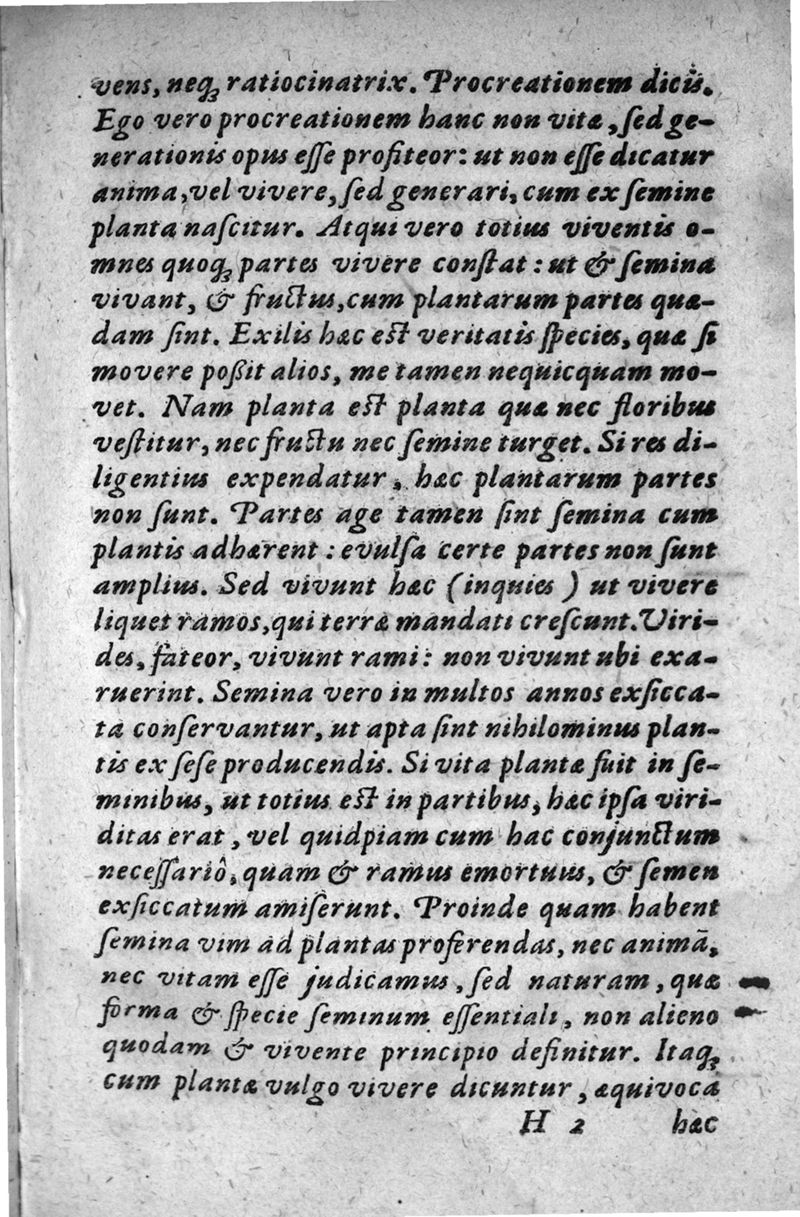 vens, neq; ratiocinatrix. Procreationem dicis.
Ego vero procreationem hanc non vitæ, ſed ge-
nerationis opus eſſe profiteor: ut non eſſe dicatur
anima, vel vivere, ſed generari, cum ex ſemine
planta naſcitur. Atqui vero totius viventis o-
mnes quoq; partes vivere conſtat: ut & ſemina
vivant, & fructus, cum plantarum partes quæ-
dam ſint. Exilis hæc eſt veritatis ſpecies, quæ ſi
movere poßit alios, me tamen nequicquam mo-
vet. Nam planta eſt planta quæ nec floribus
veſtitur, nec fructu nec ſemine turget. Si res di-
ligentius expendatur, hæc plantarum partes
non ſunt. Partes age tamen ſint ſemina cum
plantis adhærent: evulſa certe partes non ſunt
amplius. Sed vivunt hæc (inquies) ut vivere
liquet ramos, qui terræ mandati creſcunt. Viri-
des, fateor, vivunt rami: non vivunt ubi exa-
ruerint. Semina vero in multos annos exſicca-
ta conſervantur, ut apta ſint nihilominus plan-
tis ex ſeſe producendis. Si vita plantæ fuit in ſe-
minibus, ut totius eſt in partibus, hæc ipſa viri-
ditas erat, vel quidpiam cum hac conjunctum
neceſſariò, quam & ramus emortuus, & ſemen
exſiccatum amiſerunt. Proinde quam habent
ſemina vim ad plantas proferendas, nec animā,
nec vitam eſſe judicamus, ſed naturam, quæ
forma & ſpecie ſeminum eſſentiali, non alieno
quodam & vivente principio definitur. Itaq;
cum plantæ vulgo vivere dicuntur, æquivoca
H 2 hæc